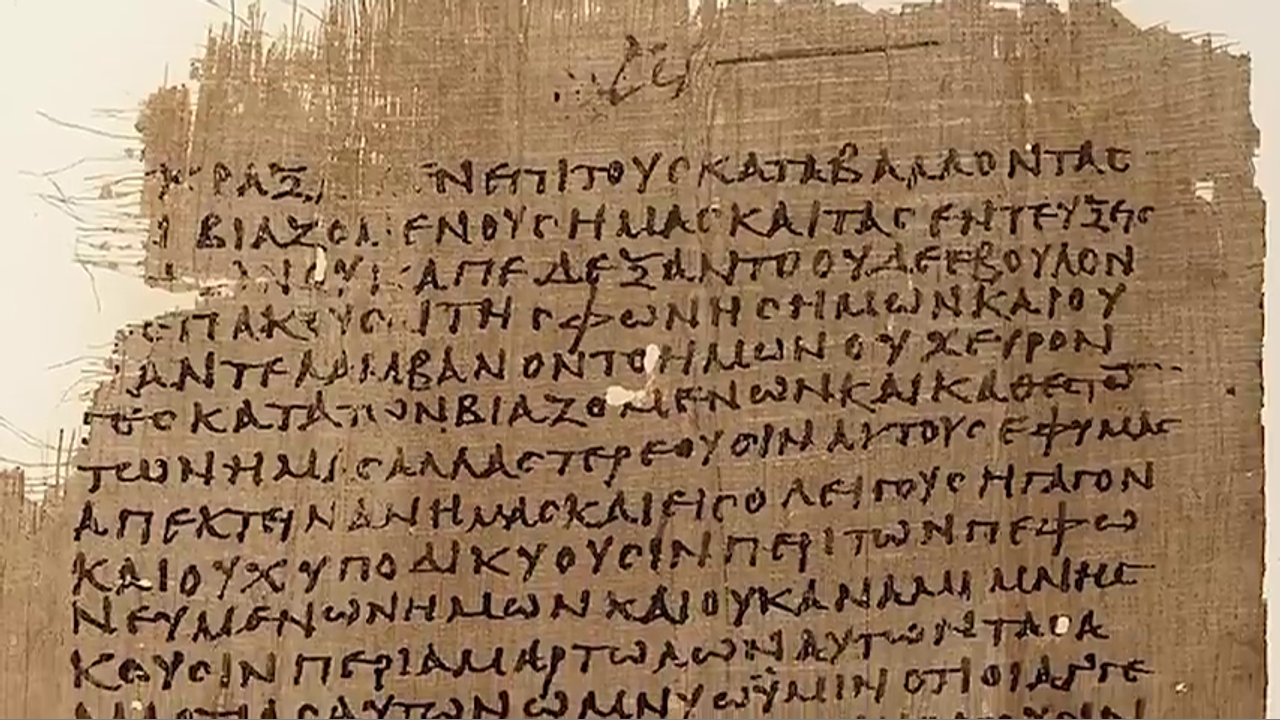 ΚΡΑΖ ΝΕΠΙΤΟΥΣΚΑΤΑΒΑΛΛΟΝΤΑΣ
ΒΙΑΖΟΜΕΝΟΥΣΗΜΑΣΚΑΙΤΑΣ ΕΝΤΕΥΞΕΙΣ
ΑΠΕΔΕΞΑΝΤΟΟΥΔΕΕΒΟΥΛΟΝ
ΕΠΑΚΟΥΣ ΙΤΗΣΦΩΝΗΣΗΜΩΝΚΑΙΟΥ
ΑΝΤΕΛΑΜΒΑΝΟΝΤΟΗΜΩΝΟΥΧΕΥΡΟΝ
ΚΑΤΑΤΩΝΒΙΑΖΟΜΕΝΩΝΚΑΙΚΑΘΕΣΤΩ
ΤΩΝΗΜΑΣΑΛΛΑΣΤΕΡΕΟΥΣΙΝΑΥΤΟΥΣΕΦΥΜΑΣ
ΑΠΕΚΤΕΙΝΑΝΗΜΑΣΚΑΙΕΙΣΟΛΕΙΓΟΥΣΗΓΑΓΟΝ
ΚΑΙΟΥΧΥΠΟΔΙΚΥΟΥΣΙΝΠΕΡΙΤΩΝΠΕΦΩ
ΝΕΥΜΕΝΩΝΗΜΩΝΚΑΙΟΥΚΑΝΑΜΙΜΝΗΣ
ΚΟΥΣΙΝΠΕΡΙΑΜΑΡΤΩΛΩΝΑΥΤΩΝΤΑΣΑ
ΑΥΤΩΝΟΜΝΥΩΥΜΙΝΟΤΙΟΙΑΓΓΕ